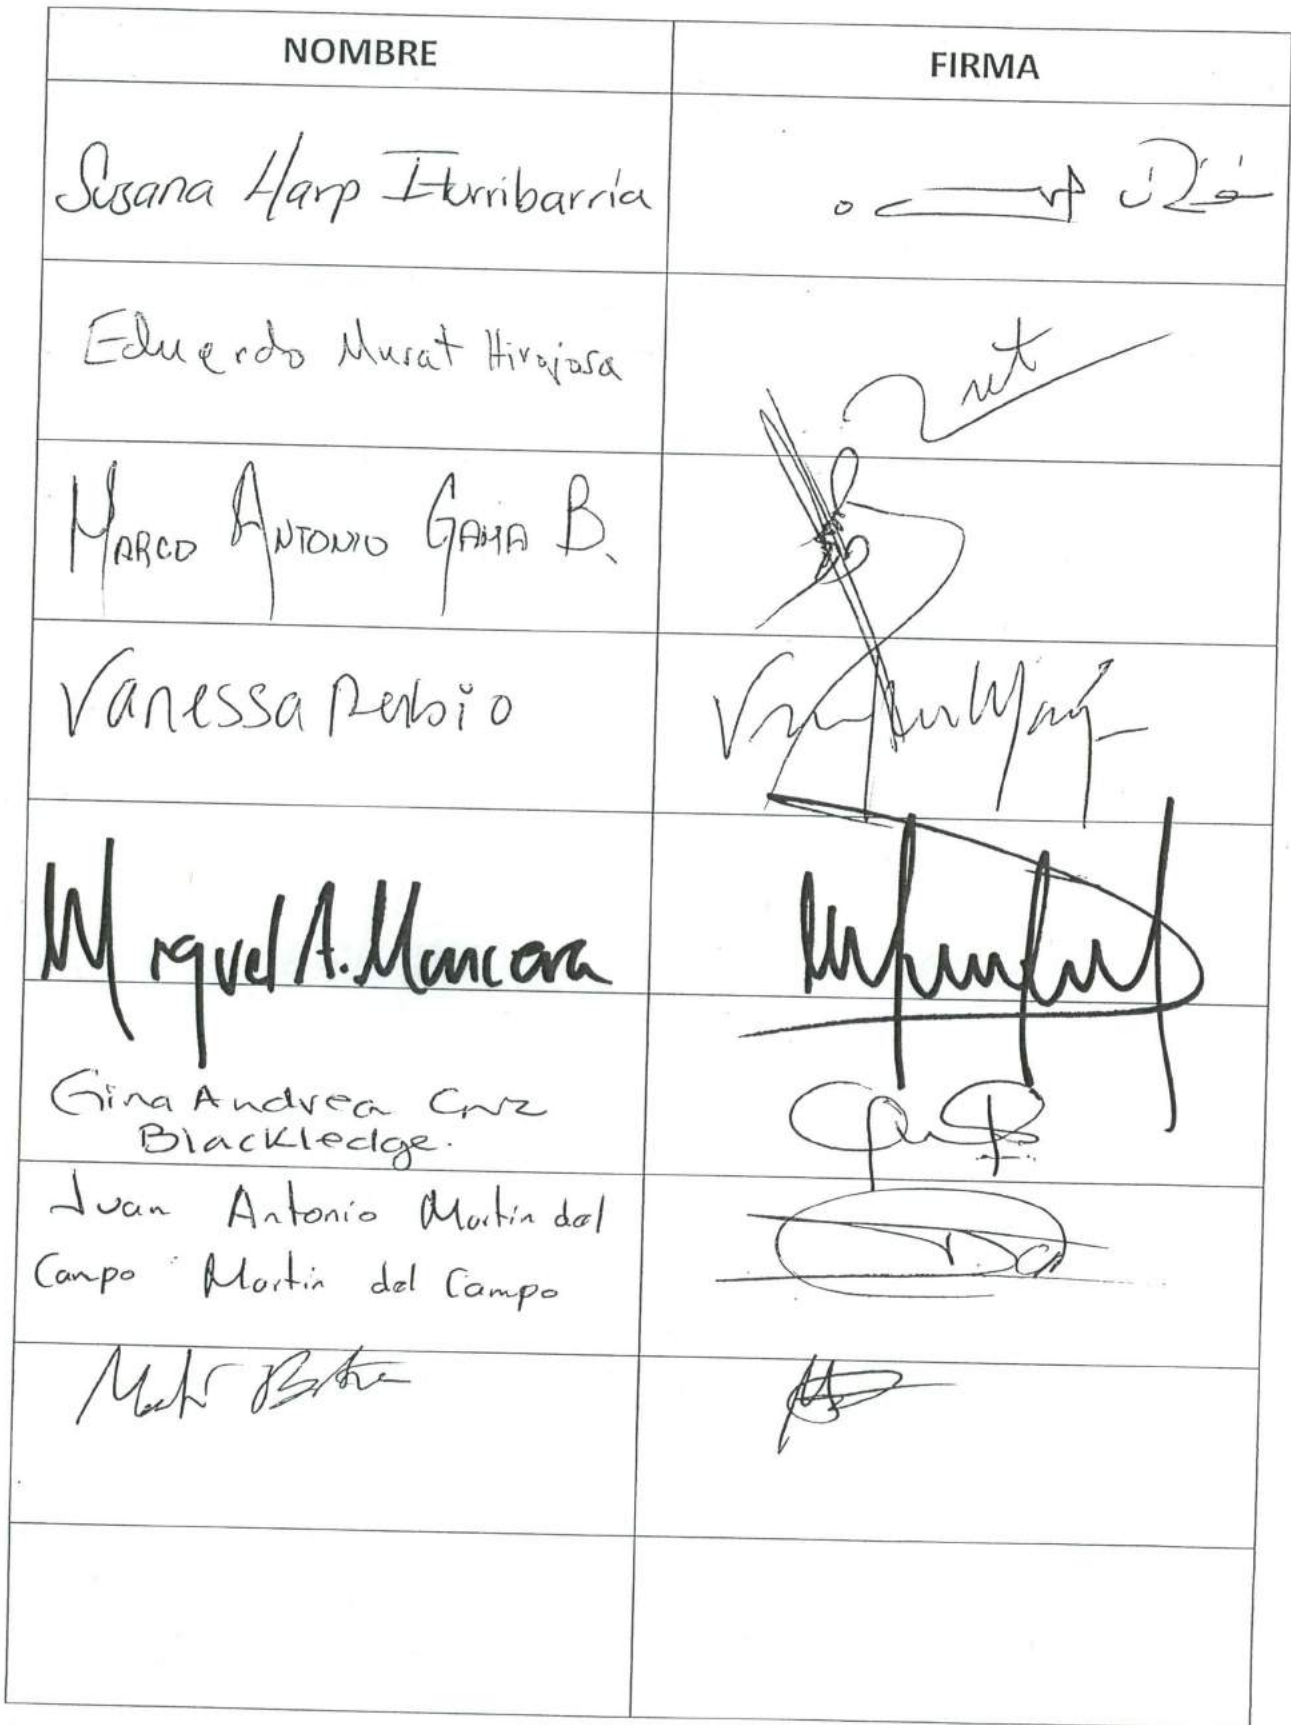 NOMBRE FIRMA
Susana Harp Iturribarría
Eduardo Murat Hinojosa
MARCO ANTONIO GAMA B.
Vanessa Rubio
Miguel A. Mancera
Gina Andrea Cruz
Blackledge.
Juan Antonio Martin del
Campo Martin del Campo